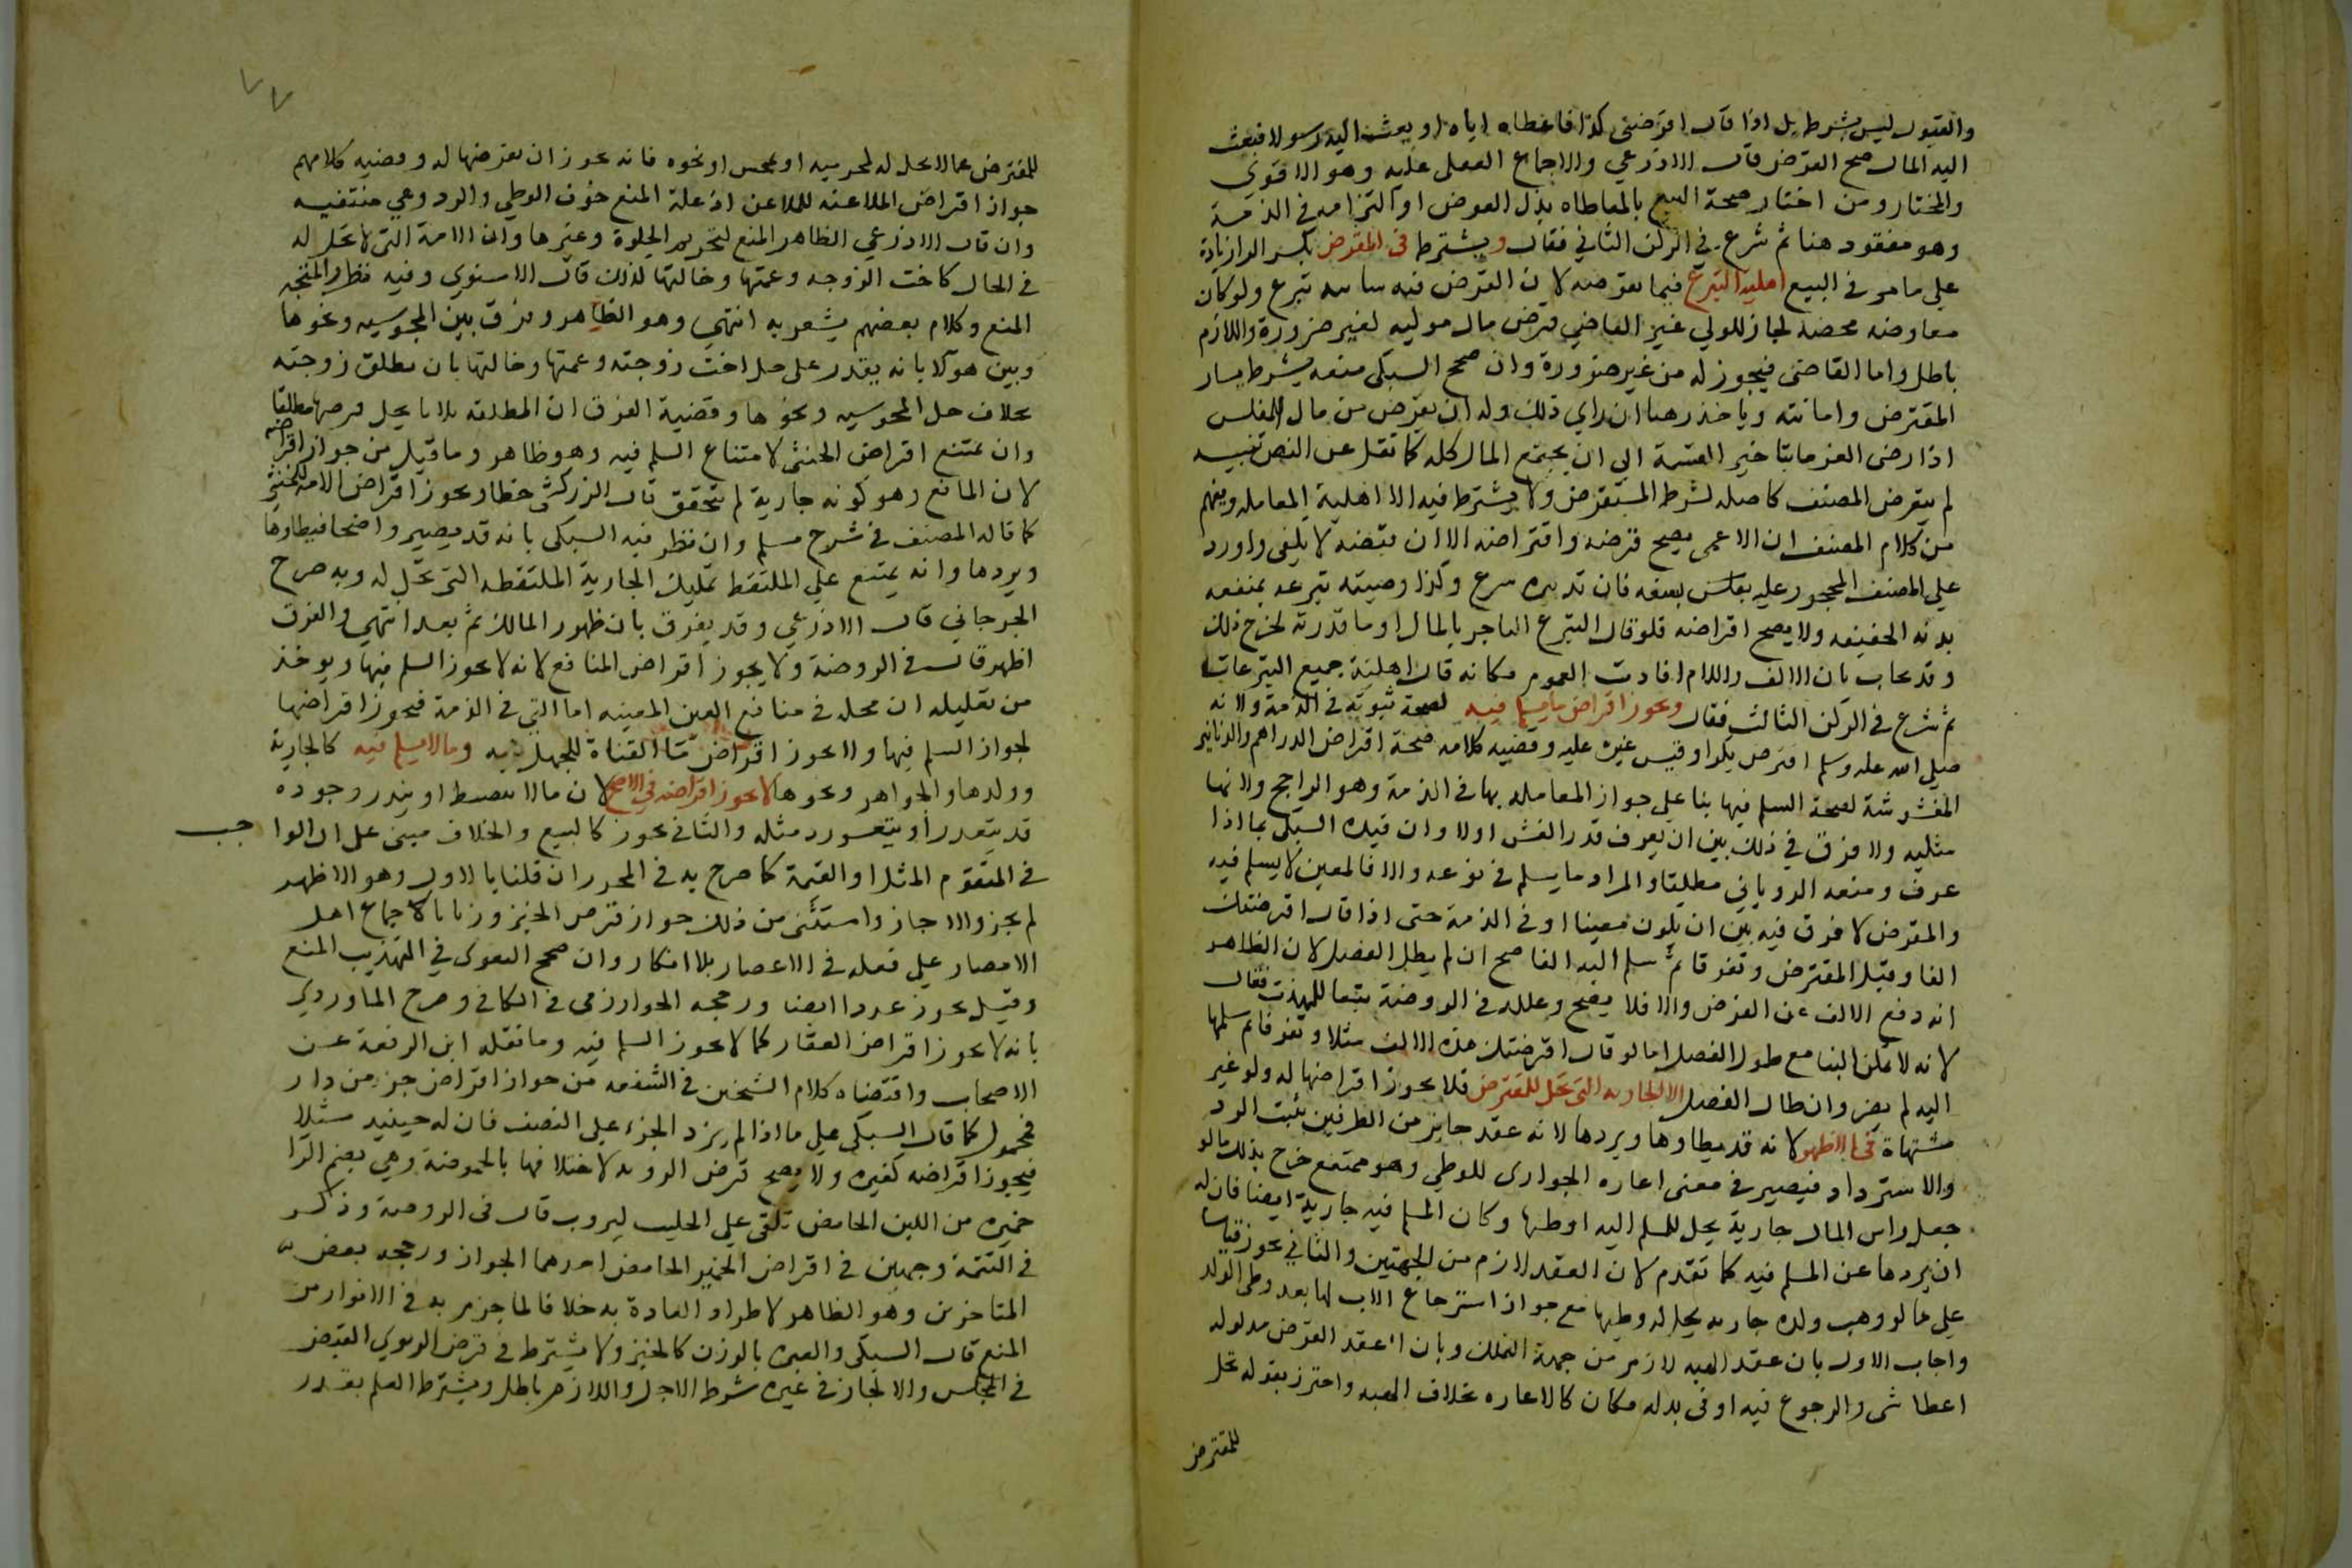 والقبول ليس بشرط بل اذا قال اقرضني كذا فاعطاه اياه او بعث اليه رسولا فبعث
اليه المال صح القرض قال الاذرعي والاجماع الفعلي عليه وهو الاقوى
والمختار ومن اختار صحة البيع بالمعاطاه بذل العوض او التزامه في الذمة
وهو مفقود هنا ثم شرع في الركن الثاني فقال ويشترط في المقرض بكسر الرا زيادة
على ما مر في البيع اهلية التبرع فيما يقرضه لان القرض فيه شائبه تبرع ولو كان
معاوضه محضه لجاز للولي غير القاضي قرض مال موليه لغير ضرورة واللازم
باطل واما القاضي فيجوز له من غير ضرورة وان صحح السبكي منعه بشرط يسار
المقترض وامانته وياخذ رهنا ان راي ذلك وله ان يقرض من مال المفلس
اذا رضي الغرما بتاخير القسمة الى ان يجتمع المال كله كما نقل عن النص تنبيه
لم يتعرض المصنف كاصله لشرط المستقرض ولا يشترط فيه الا اهلية المعامله ويفهم
من كلام المصنف ان الاعمى يصح قرضه واقتراضه الا ان قبضه لا يكفي واورد
على المصنف المحجور عليه بفلس بسفه فان تدبيره تبرع وكذا وصيته تبرعه بمنفعه
بدنه الخفيفه ولا يصح اقراضه فلو قال التبرع الناجز بالمال او ما قدرته لخرج ذلك
وقد يجاب بان الالف واللام افادت العموم فكانه قال اهلية جميع التبرعات
ثم شرع في الركن الثالث فقال ويجوز اقراض ما يسلم فيه لصحة ثبوته في الذمة ولانه
صلى الله عليه وسلم اقترض بكرا وقيس غيره عليه وقضيه كلامه صحة اقراض الدراهم والدنانير
المغشوشة لصحة السلم فيها بنا على جواز المعامله بها في الذمة وهو الراجح ولانها
مثليه ولا فرق في ذلك بين ان يعرف قدر الغش اولا وان قيده السبكي بما اذا
عرف ومنعه الروياني مطلقا والمراد ما يسلم في نوعه والا فالمعين لا يسلم فيه
والمقرض لا فرق فيه بين ان يكون معينا او في الذمة حتى اذا قال اقرضتك
الفا وقبل المقترض وتفرقا ثم سلم اليه الفا صح ان لم يطل الفصل لان الظاهر
انه دفع الالف عن القرض والا فلا يصح وعلله في الروضة تبعا للمهذب فقال
لانه لا يمكن البنا مع طول الفصل اما لو قال اقرضتك هذه الالف مثلا وتفرقا ثم سلمها
اليه لم يضر وان طال الفصل الا الجاريه التي تحل للمقترض فلا يجوز اقراضها له ولو غير
مشتهاة في الاظهر لانه قد يطاوها ويردها لانه عقد جايز من الطرفين يثبت الرد
والاسترداد فيصير في معنى اعاره الجواري للوطي وهو ممتنع خرج بذلك ما لو
جعل راس المال جارية يحل للمسلم اليه وطئها وكان المسلم فيه جارية ايضا فان له
ان يردها عن المسلم فيه كما تقدم لان العقد لازم من الجهتين والثاني يجوز قياسا
على ما لو وهب ولده جاريه يحل له وطيها مع جواز استرجاع الاب لها بعد وطي الولد
واجاب الاول بان عقد الهبه لازم من جهة التملك وبان عقد القرض مدلوله
اعطا شي والرجوع فيه او في بدله فكان كالاعاره بخلاف الهبه واحترز بقوله تحل
للمقترض
٧٧
للمقترض عما لا يحل له لمحرميه او تمجس او نحوه فانه يجوز ان يقرضها له وقضيه كلامهم
جواز اقراض الملاعنه للملاعن اذ علة المنع خوف الوطي والرد وهي منتفيه
وان قال الاذرعي الظاهر المنع لتحريم الخلوة وغيرها وان الامة التي لا تحل له
في الحال كاخت الزوجه وعمتها وخالتها لذلك قال الاسنوي وفيه نظر والمتجه
المنع وكلام بعضهم يشعر به انتهى وهو الظاهر وفرق بين المجوسيه ونحوها
وبين هولا بانه يقدر على حل اخت زوجته وعمتها وخالتها بان يطلق زوجته
بخلاف حل المجوسيه ونحوها وقضية الفرق ان المطلقه ثلاثا يحل قرضها مطلقا
وان يمتنع اقراض الخنثى لامتناع السلم فيه وهو ظاهر وما قيل من جواز اقراضه
لان المانع وهو كونه جارية لم يتحقق قال الزركشي خطا ويجوز اقراض الامه للخنثى
كما قاله المصنف في شرح مسلم وان نظر فيه السبكي بانه قد يصير واضحا فيطاوها
ويردها وانه يمتنع على الملتقط تملك الجارية الملتقطه التي تحل له وبه صرح
الجرجاني قال الاذرعي وقد يفرق بان ظهور المالك ثم بعد انتهى والفرق
اظهر قال في الروضة ولا يجوز اقراض المنافع لانه لا يجوز السلم فيها ويوخذ
من تعليله ان محله في منافع العين المعينه اما التي في الذمة فيجوز اقراضها
لجواز السلم فيها ولا يجوز اقراض ما القناة للجهل به وما لا يسلم فيه كالجارية
وولدها والجواهر ونحوها لا يجوز اقراضه في الاصح لان ما لا ينضبط او يندر وجوده
قد يتعذر او يتعسر رد مثله والثاني يجوز كالبيع والخلاف مبني على ان الواجب
في المتقوم المثل او القيمة كما صرح به في المحرر ان قلنا بالاول وهو الاظهر
لم يجز والا جاز واستثنى من ذلك جواز قرض الخبز وزنا بالاجماع اهل
الامصار على فعله في الاعصار بلا انكار وان صحح البغوي في التهذيب المنع
وقيل يجوز عددا ايضا ورجحه الخوارزمي في الكافي وصرح الماوردي
بانه لا يجوز اقراض العقار كما لا يجوز السلم فيه وما نقله ابن الرفعة عن
الاصحاب واقتضاه كلام الشيخين في الشفعه من جواز اقراض جزء من دار
فمحمول كما قال السبكي على ما اذا لم يزد الجزء على النصف فان له حينيذ مثلا
فيجوز اقراضه كغيره ولا يصح قرض الروبه لاختلافها بالحموضة وهي بضم الرا
خميره من اللبن الحامض تلقى على الحليب ليروب قال في الروضة وذكر
في التتمة وجهين في اقراض الخمير الحامض احدهما الجواز ورجحه بعض
المتاخرين وهو الظاهر لاطراد العادة به خلافا لما جزم به في الانوار من
المنع قال السبكي والعبره بالوزن كالخبز ولا يشترط في قرض الربوي القبض
في المجلس والا لجاز في غيره شرط الاجل واللازم باطل ويشترط العلم بقدر